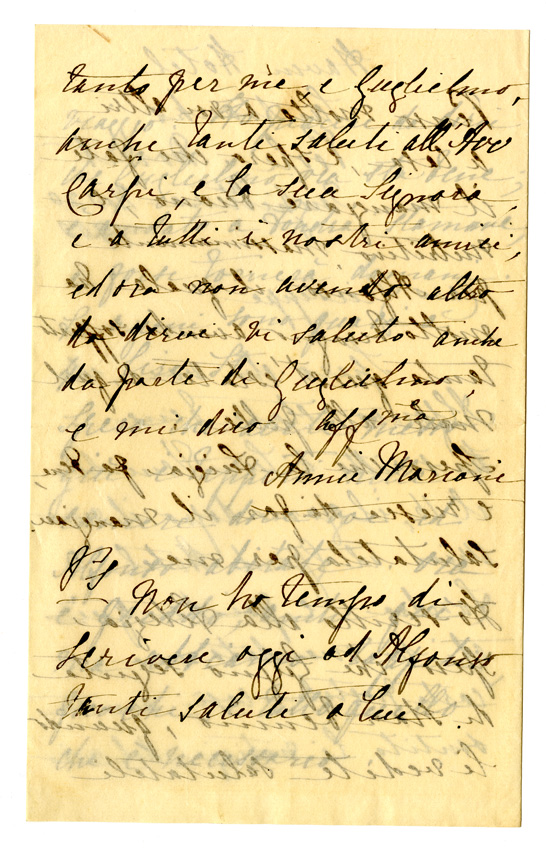 tanto per me e Guglielmo,
anche tanti saluti all'Avv
Carpi, e la sua Signora,
e a tutti i nostri amici,
ed ora non avendo altro
da dirvi vi saluto anche
da parte di Guglielmo,
e mi dico affma
Annie Marconi
PS
Non ho tempo di
scrivere oggi ad Alfonso
tanti saluti a lui